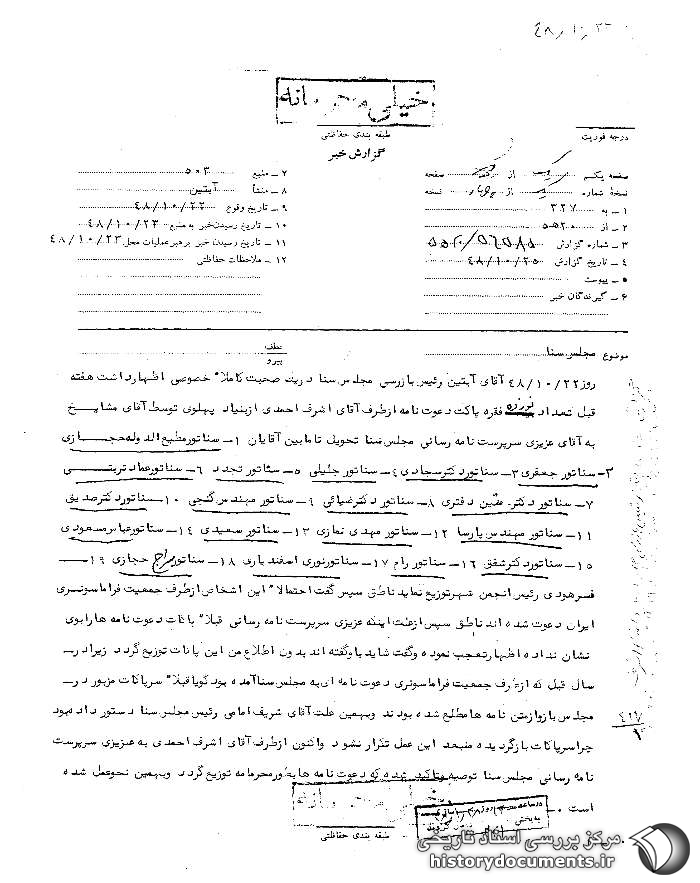 خیلی محرمانه
طبقه بندی حفاظتی
گزارش خبر
درجه فوریت
صفحه یک از صفحه
نسخهٔ شماره از چهار نسخه
۱ – به ۳۲۷
۲ – از ۵ه۲۰
۳ – شماره گزارش
۴ – تاریخ گزارش ۴۸/۱۰/۲۵
۵ – پیوست
۶ – گیرندگان خبر
۷ – منبع ۵۰۳
۸ – منشأ آبتین
۹ – تاریخ وقوع ۴۸/۱۰/۲۲
۱۰ – تاریخ رسیدن خبر به منبع ۴۸/۱۰/۲۳
۱۱ – تاریخ رسیدن خبر برهبر عملیات محل ۴۸/۱۰/۲۳
۱۲ – ملاحظات حفاظتی
موضوع مجلس سنا
عطف
پیرو
روز ۴۸/۱۰/۲۲ آقای آبتین رئیس بازرسی مجلس سنا در یک صحبت کاملا" خصوصی اظهار داشت هفته
قبل تعداد نوزده فقره پاکت دعوت نامه از طرف آقای اشرف احمدی از بنیاد پهلوی توسط آقای مشایخ
به آقای عزیزی سرپرست نامه رسانی مجلس سنا تحویل تا مابین آقایان ۱– سناتور مطیع الدوله حجازی
۲– سناتور جعفری ۳– سناتور دکتر سجادی ۴– سناتور جلیلی ۵– سناتور تجدد ۶– سناتور عماد تربتی
۷– سناتور دکتر متین دفتری ۸– سناتور دکتر ضیائی ۹– سناتور مهندس گنجی ۱۰– سناتور دکتر صدیق
۱۱– سناتور مهندس پارسا ۱۲– سناتور مهدی نمازی ۱۳– سناتور سعیدی ۱۴– سناتور عباس مسعودی
۱۵– سناتور دکتر شفق ۱۶– سناتور رام ۱۷– سناتور نوری اسفندیاری ۱۸– سناتور سراج حجازی ۱۹–
فرهودی رئیس انجمن شهر توزیع نماید ناطق سپس گفت احتمالا" این اشخاص از طرف جمعیت فراماسونری
ایران دعوت شده اند ناطق سپس از علت اینکه عزیزی سرپرست نامه رسانی قبلا" پاکات دعوت نامه ها را بوی
نشان نداده اظهار تعجب نموده و گفت شاید باو گفته اند بدون اطلاع من این پاکات توزیع گردد زیرا در
سال قبل که از طرف جمعیت فراماسونری دعوت نامه ای به مجلس سنا آمده بود گویا قبلا" سر پاکات مزبور در
مجلس باز و از متن نامه ها مطلع شده بودند و بهمین علت آقای شریف امامی رئیس مجلس سنا دستور داده بود
چرا سر پاکات باز گردیده منبعد این عمل تکرار نشود و اکنون از طرف آقای اشرف احمدی به عزیزی سرپرست
نامه رسانی مجلس سنا توصیه و تاکید شده که دعوت نامه ها بطور محرمانه توزیع گردد و بهمین نحو عمل شده
است .
طبقه بندی حفاظتی
مرکز بررسی اسناد تاریخی
historydocuments.ir